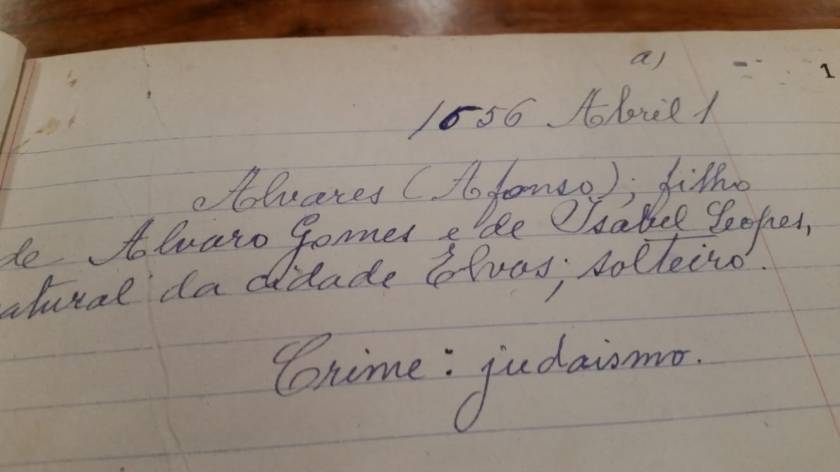 a)
1
1656 Abril 1
Alvares (Afonso); filho
de Alvaro Gomes e de Isabel Lopes,
natural da cidade Elvas; solteiro.
Crime: judaismo.